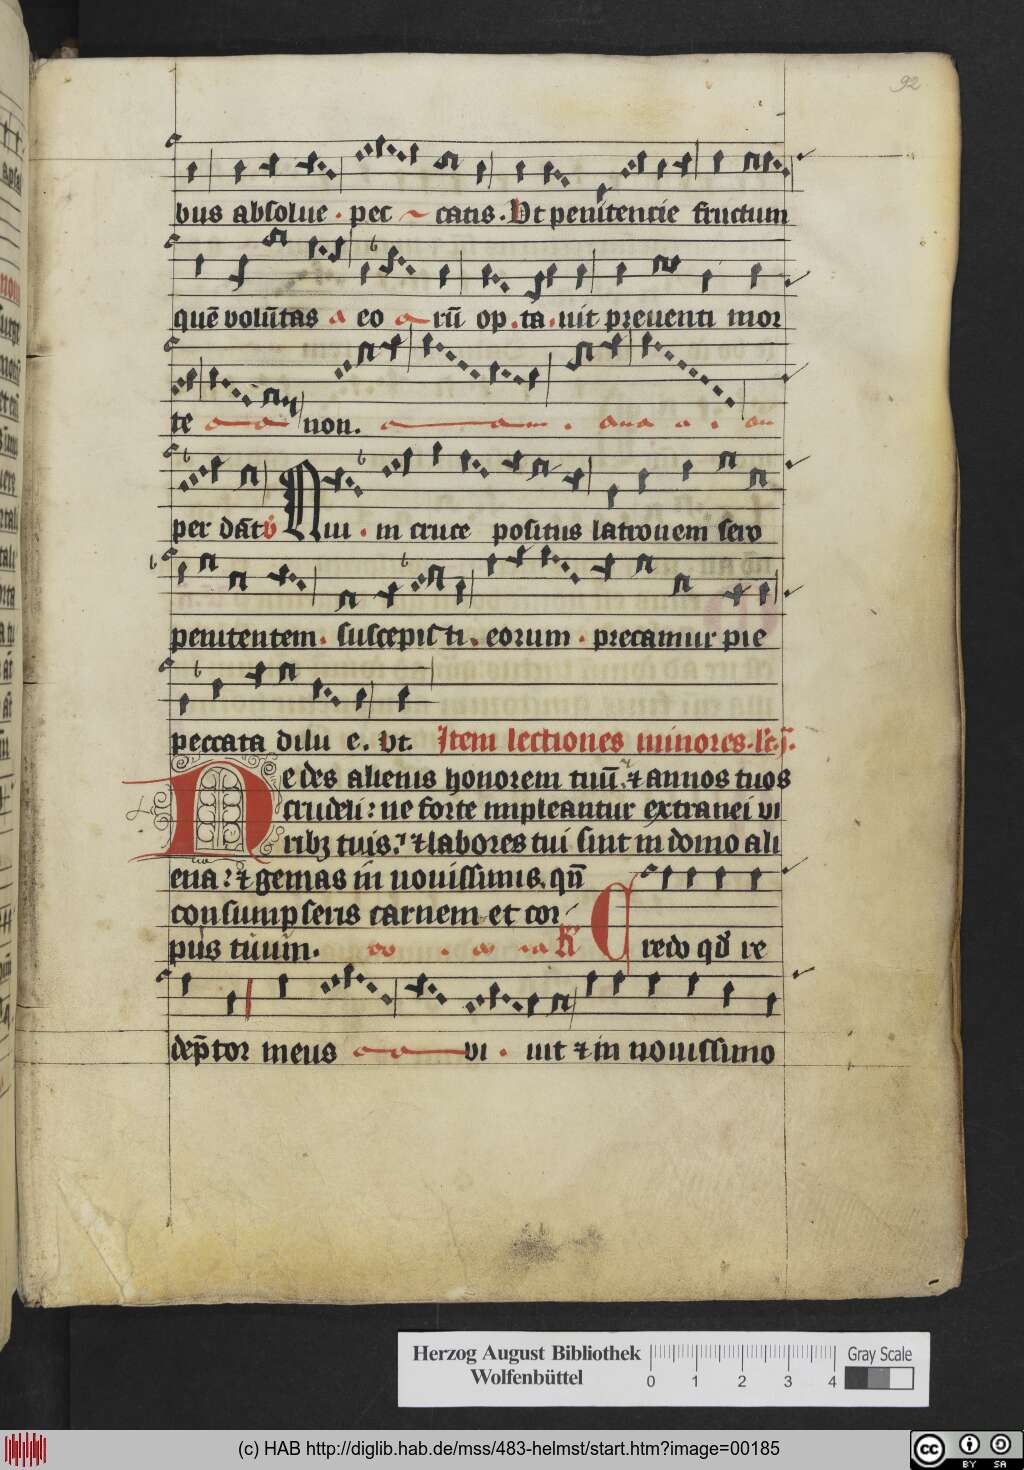 92
bus absolue . pec catis . Ut penitencie fructum
quē volūtas a eo rū op . ta . uit preuenti mor
te non .
per dāt ỽ Qui . in cruce positus latronem sero
penitentem . suscepisti . eorum . precamur pie
peccata dilu e . Ut . Item lectiones minores .
Ne des alienis honorem tuū ⁊ annos tuos
crudeli : ne forte impleantur extranei vi
ribꝫ tuis . ⁊ labores tui sint in domo ali
ena : ⁊ gemas in nouissimis . qn̄
consumpseris carnem et cor
pus tuum . R̄ Credo qd̄ re
dep̄tor meus vi . uit ⁊ in nouissimo
Herzog August Bibliothek
Wolfenbüttel
0 1 2 3 4
Gray Scale
(c) HAB http://diglib.hab.de/mss/483-helmst/start.htm?image=00185
cc BY SA